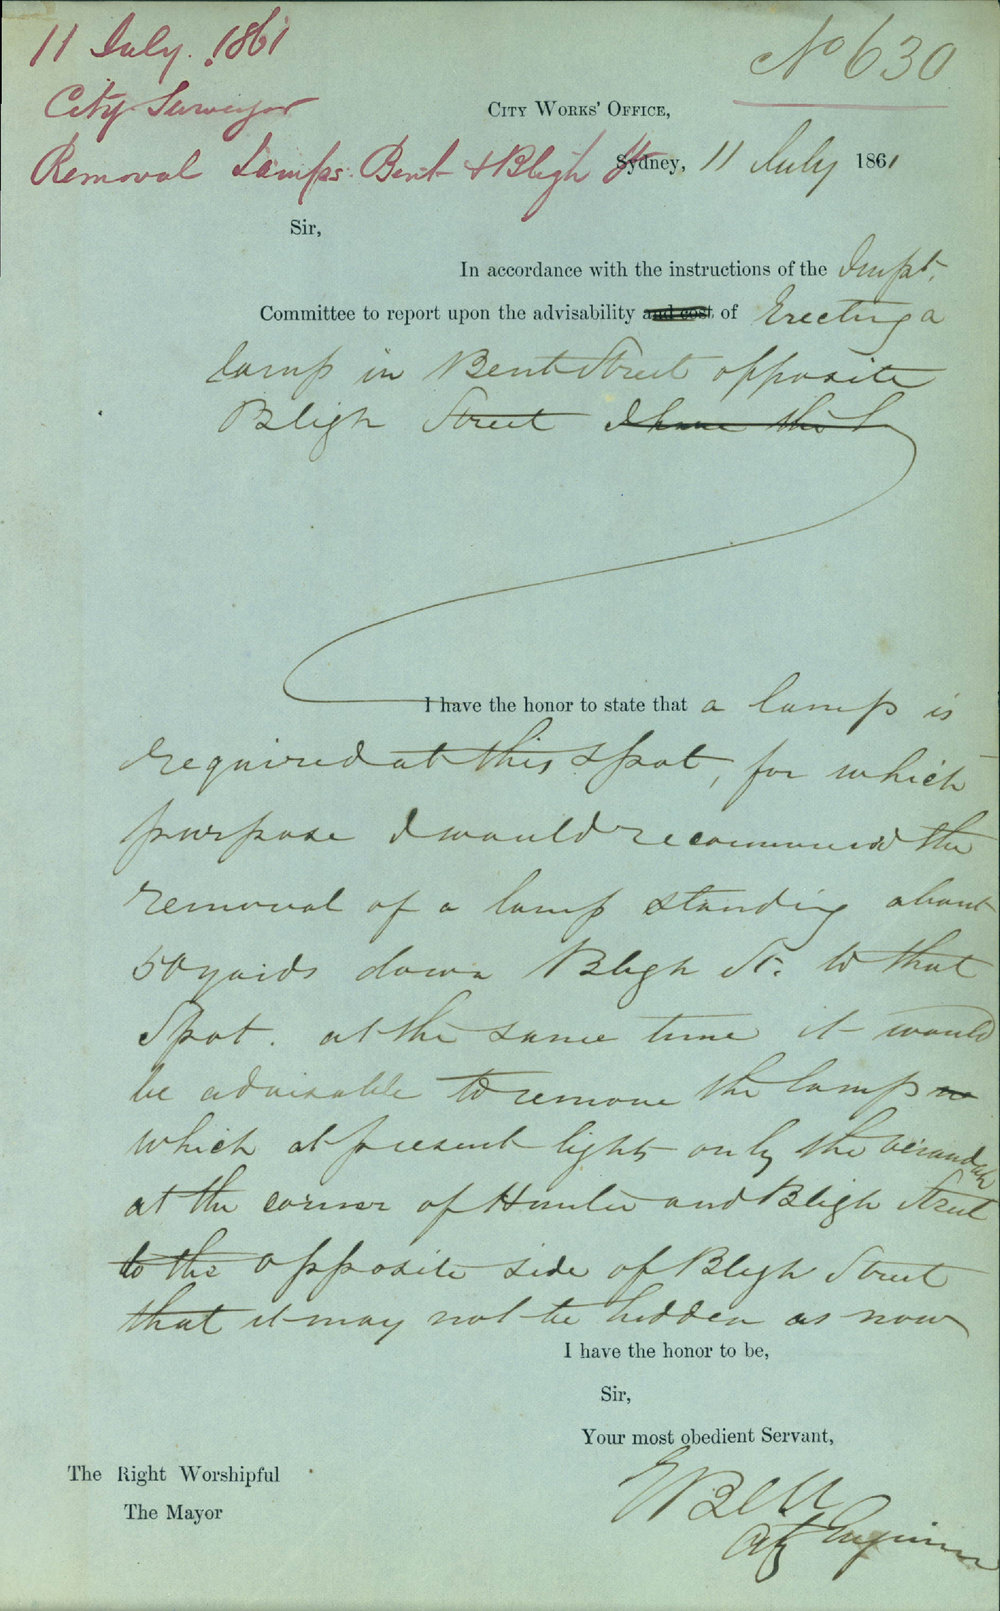 11 July. 1861
No 630
City Surveyor
CITY WORKS' OFFICE,
Removal Lamps. Bent & Bligh St
Sydney, 11 July 1861
Sir,
In accordance with the instructions of the Impt.
Committee to report upon the advisability and cost of Erecting a
lamp in Bent Street opposite
Bligh Street I have the h
I have the honor to state that a lamp is
required at this spot, for which
purpose I would recommend the
removal of a lamp standing about
50 yards down Bligh St. to that
Spot. at the same time it would
be advisable to remove the lamp
which at present lights only the verandah
at the corner of Hunter and Bligh Street
to the opposite side of Bligh Street
that it may not be hidden as now
I have the honor to be,
Sir,
Your most obedient Servant,
The Right Worshipful
The Mayor
E Bell
City Engineer